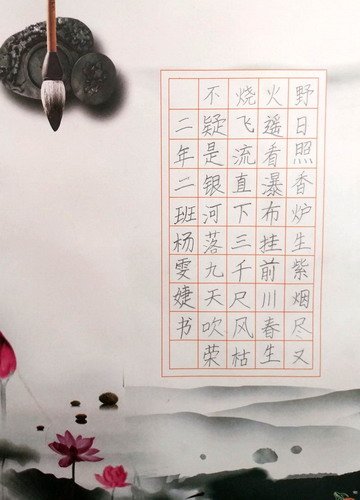 野日照香炉生紫烟尽又
火遥看瀑布挂前川春生
烧飞流直下三千尺风枯
不疑是银河落九天吹荣
二年二班杨雯婕书